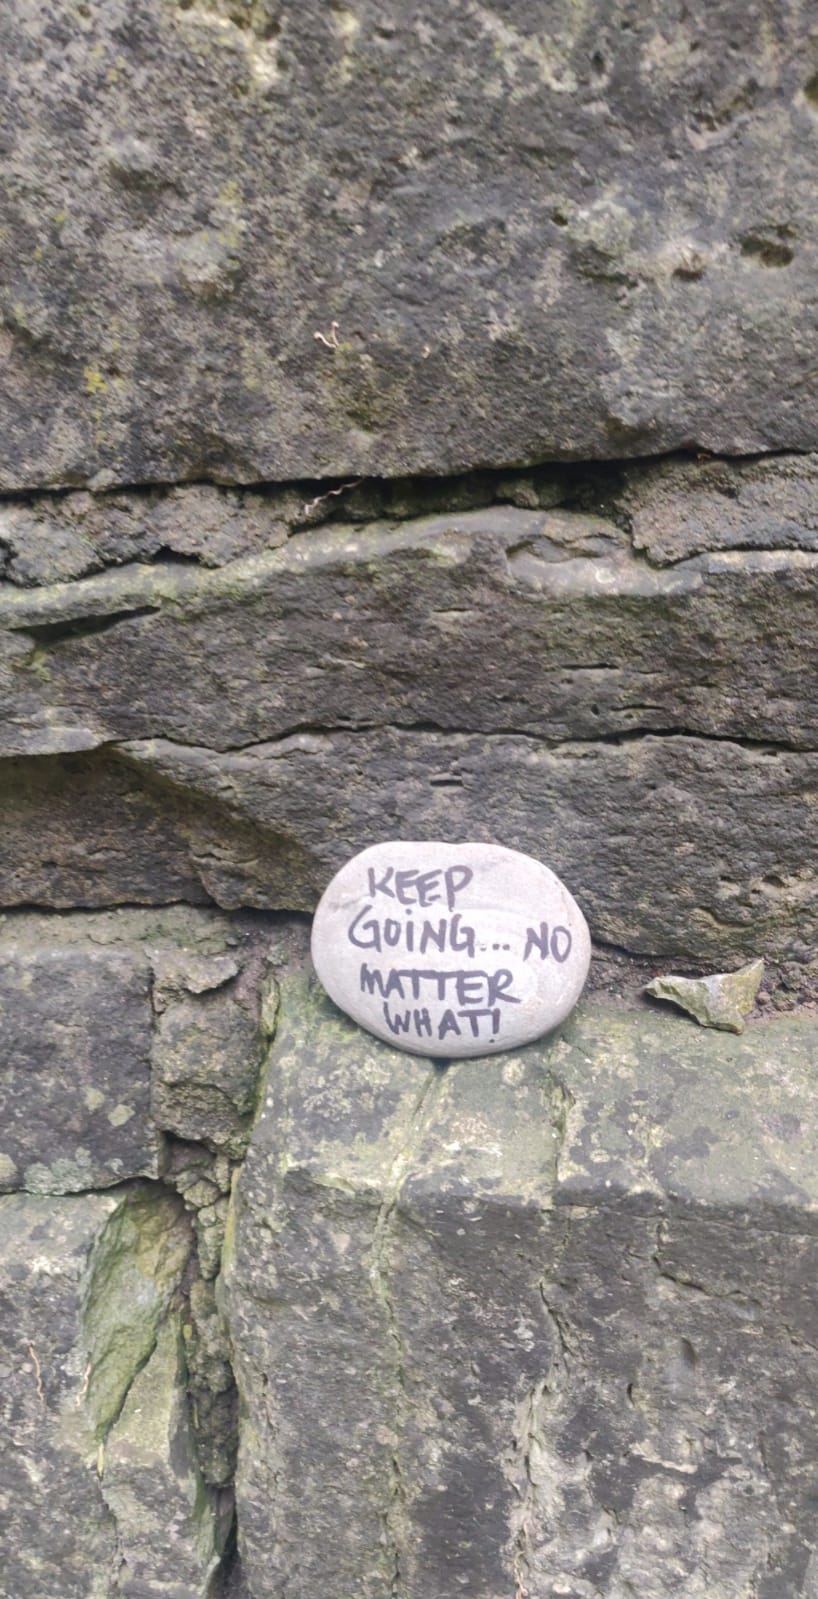 KEEP
GOING... NO
MATTER
WHAT!